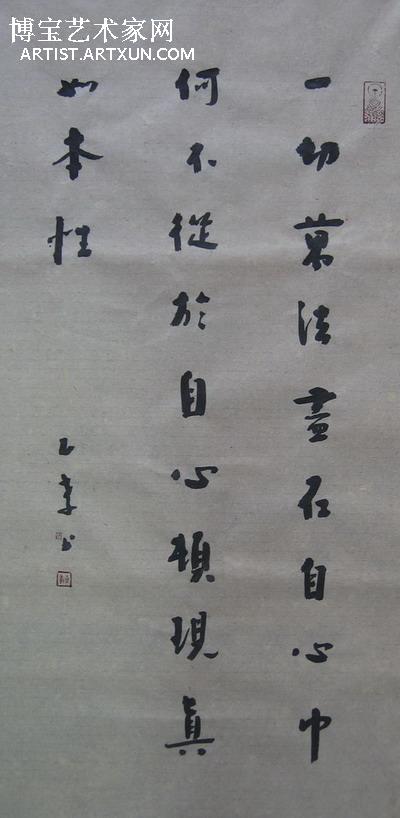 博宝艺术家网
ARTIST.ARTXUN.COM
一切萬法盡在自心中
何不從於自心頓現眞
如本性